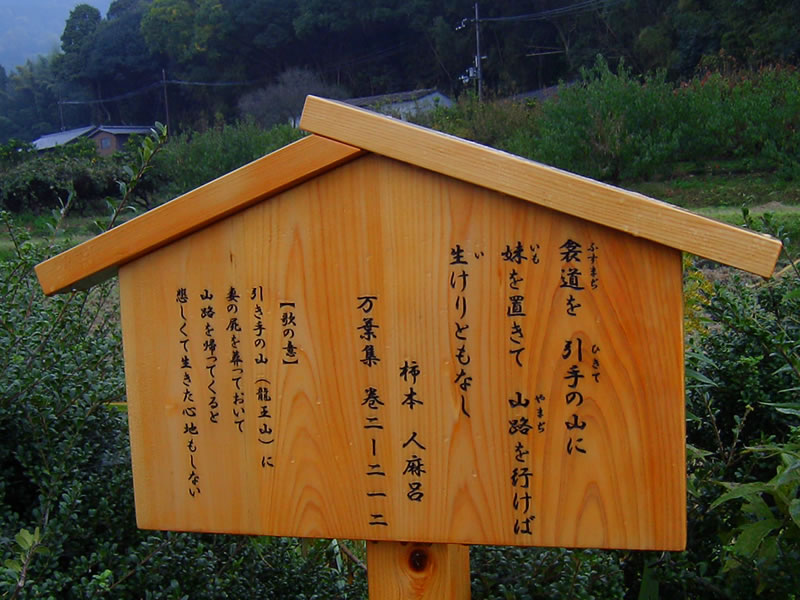 衾道を 引手の山に
妹を置きて 山路を行けば
生けりともなし
柿本 人麻呂
万葉集 巻二ー二一二
【歌の意】
引き手の山(龍王山)に
妻の屍を葬っておいて
山路を帰ってくると
悲しくて生きた心地もしない
ふすまぢ
ひきて
いも
やまぢ
い